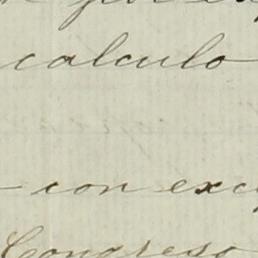 calculo
con exc
Congreso